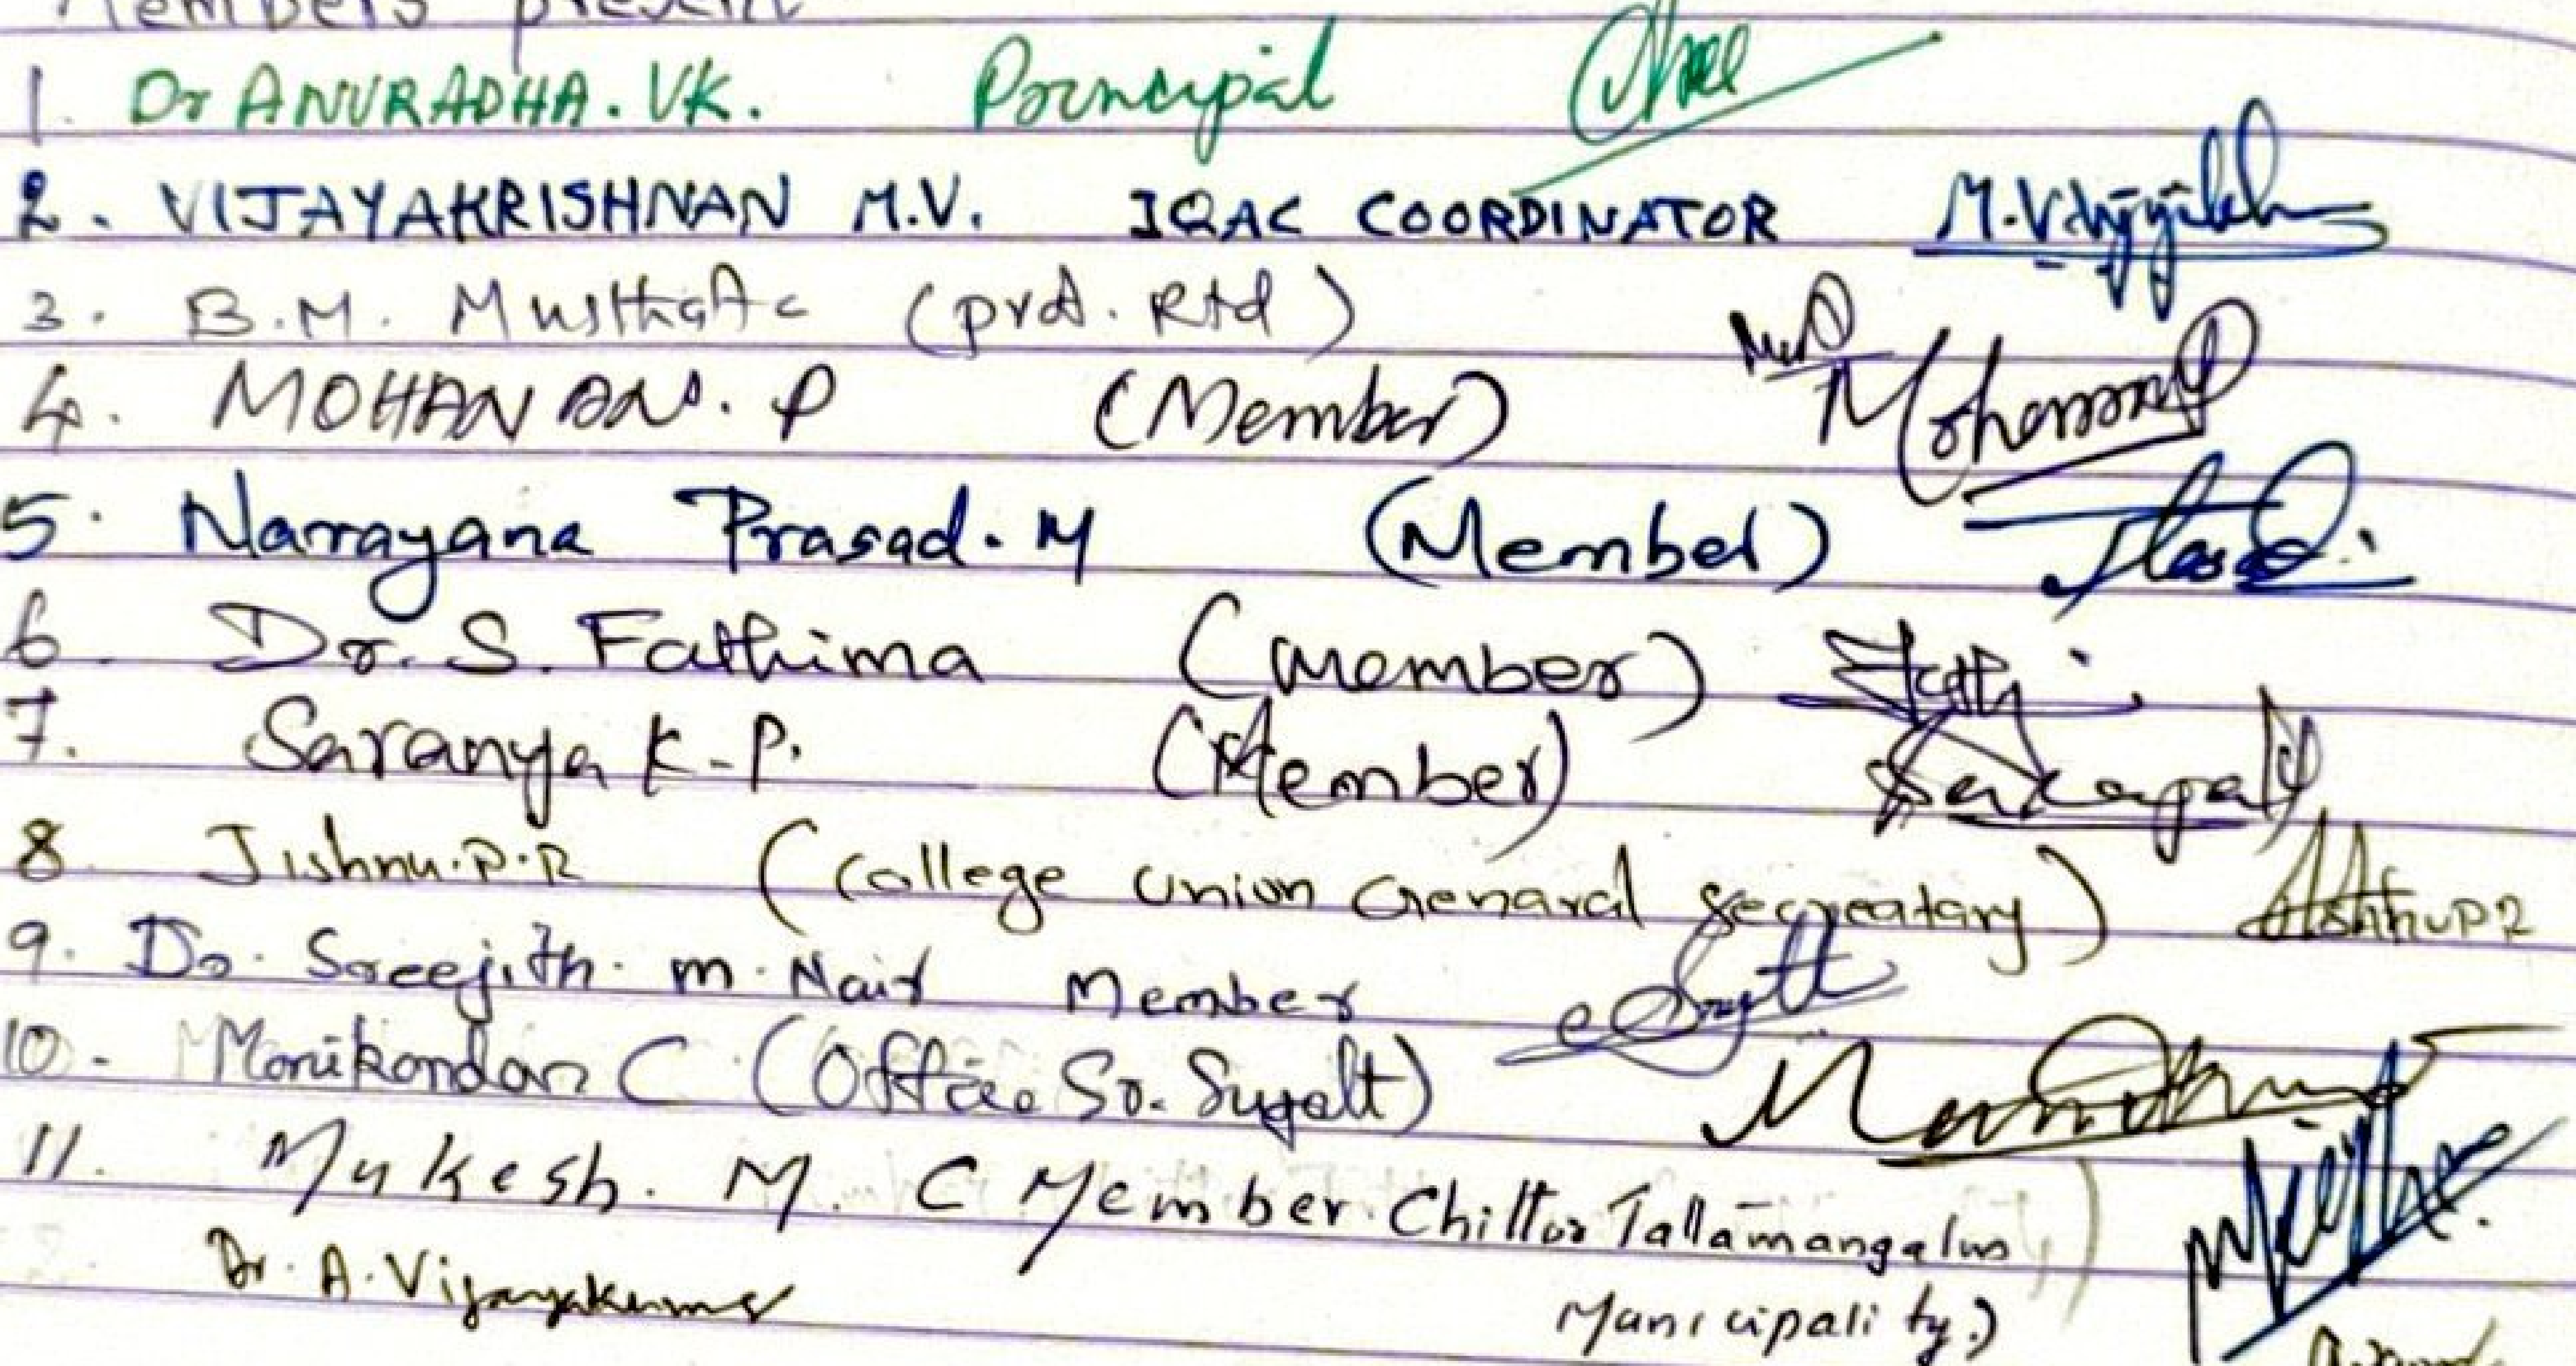 Members present
1. Dr ANURADHA. VK. Principal
2. VIJAYAKRISHNAN M.V. IQAC COORDINATOR
3. B.M. Musthafa (prd. Rtd)
4. MOHANAN. P (Member)
5. Narayana Prasad. M (Member)
6. Dr. S. Fathima (Member)
7. Saranya K.P. (Member)
8 Jishnu.P.R (College Union Genaral Secreatary) JishnuPR
9. Dr. Sreejith. m. Nair Member
10. Manikandan C (Office Sr. Supdt)
11. Mukesh. M. (Member. Chittur Tattamangalam
Municipality.)
Dr. A. Vijayakumar